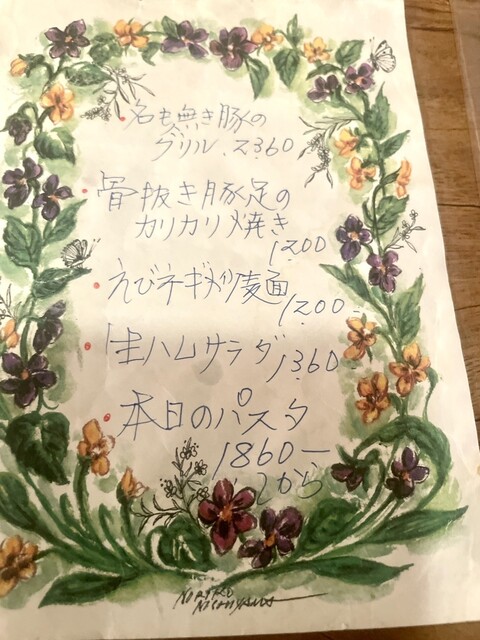 ・名も無き豚の
グリル 2360
・骨抜き豚足の
カリカリ焼き
1200
・えびネギ 麺
1200-
・生ハムサラダ 1360-
・本日のパスタ
1860ー
から
NORIKO